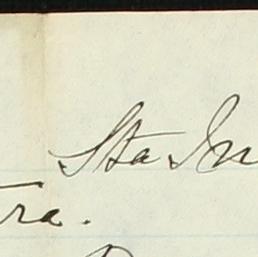 Sta In
tra.